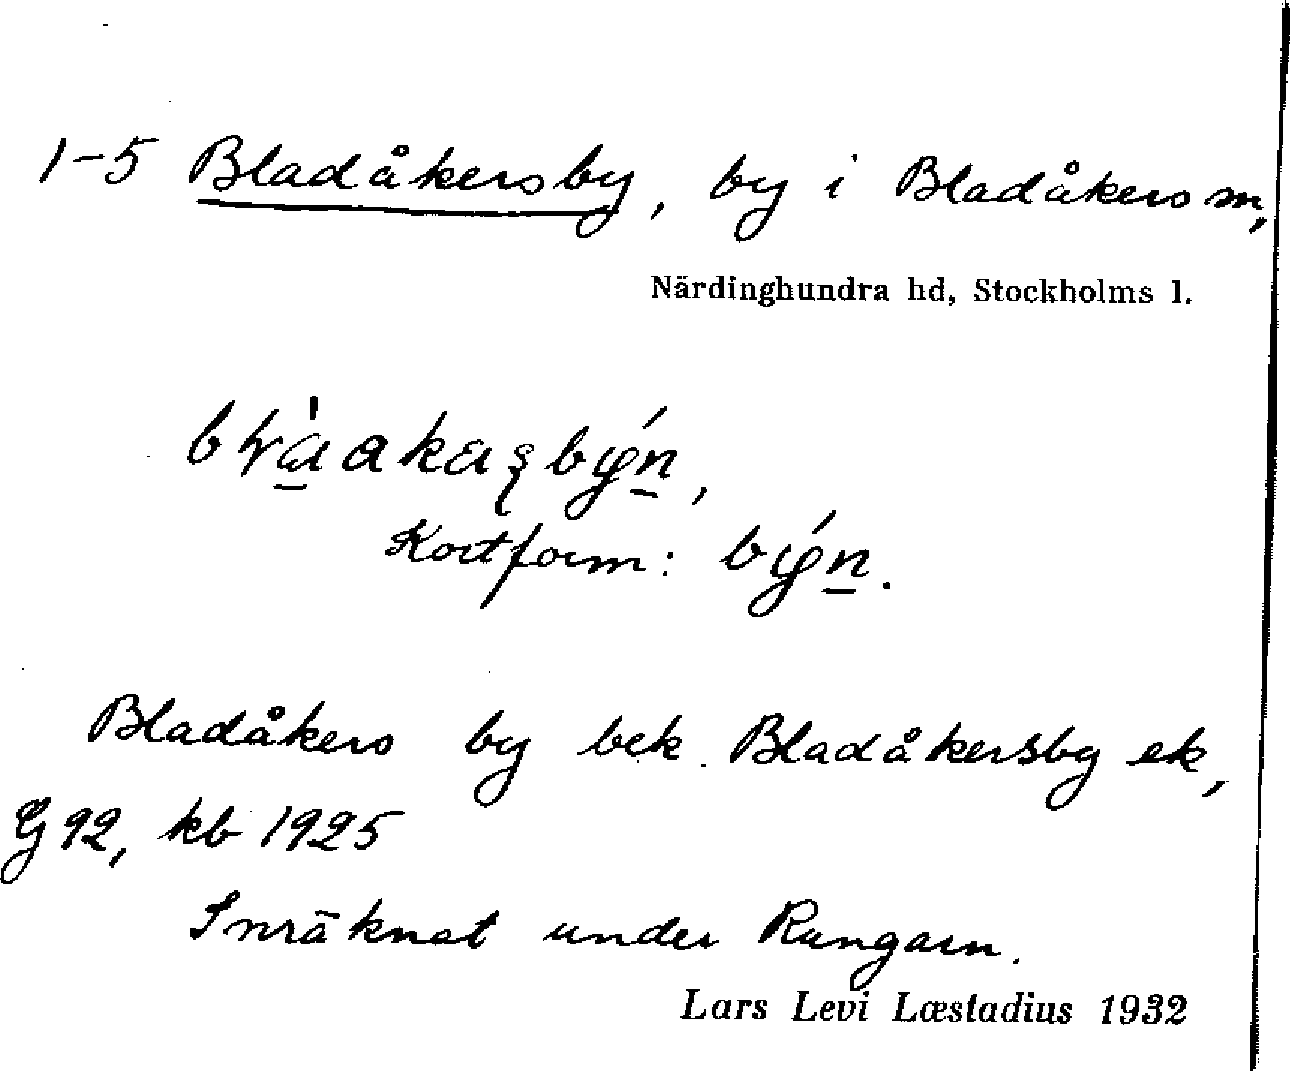 1-5 Bladåkersby, by i Bladåkers sn,
Närdinghundra hd, Stockholms l.
Kortform: by´n.
Bladåkers by bek. Bladåkersby ek,
G 92, kb 1925
Inräknat under Rungarn.
Lars Levi Læstadius 1932